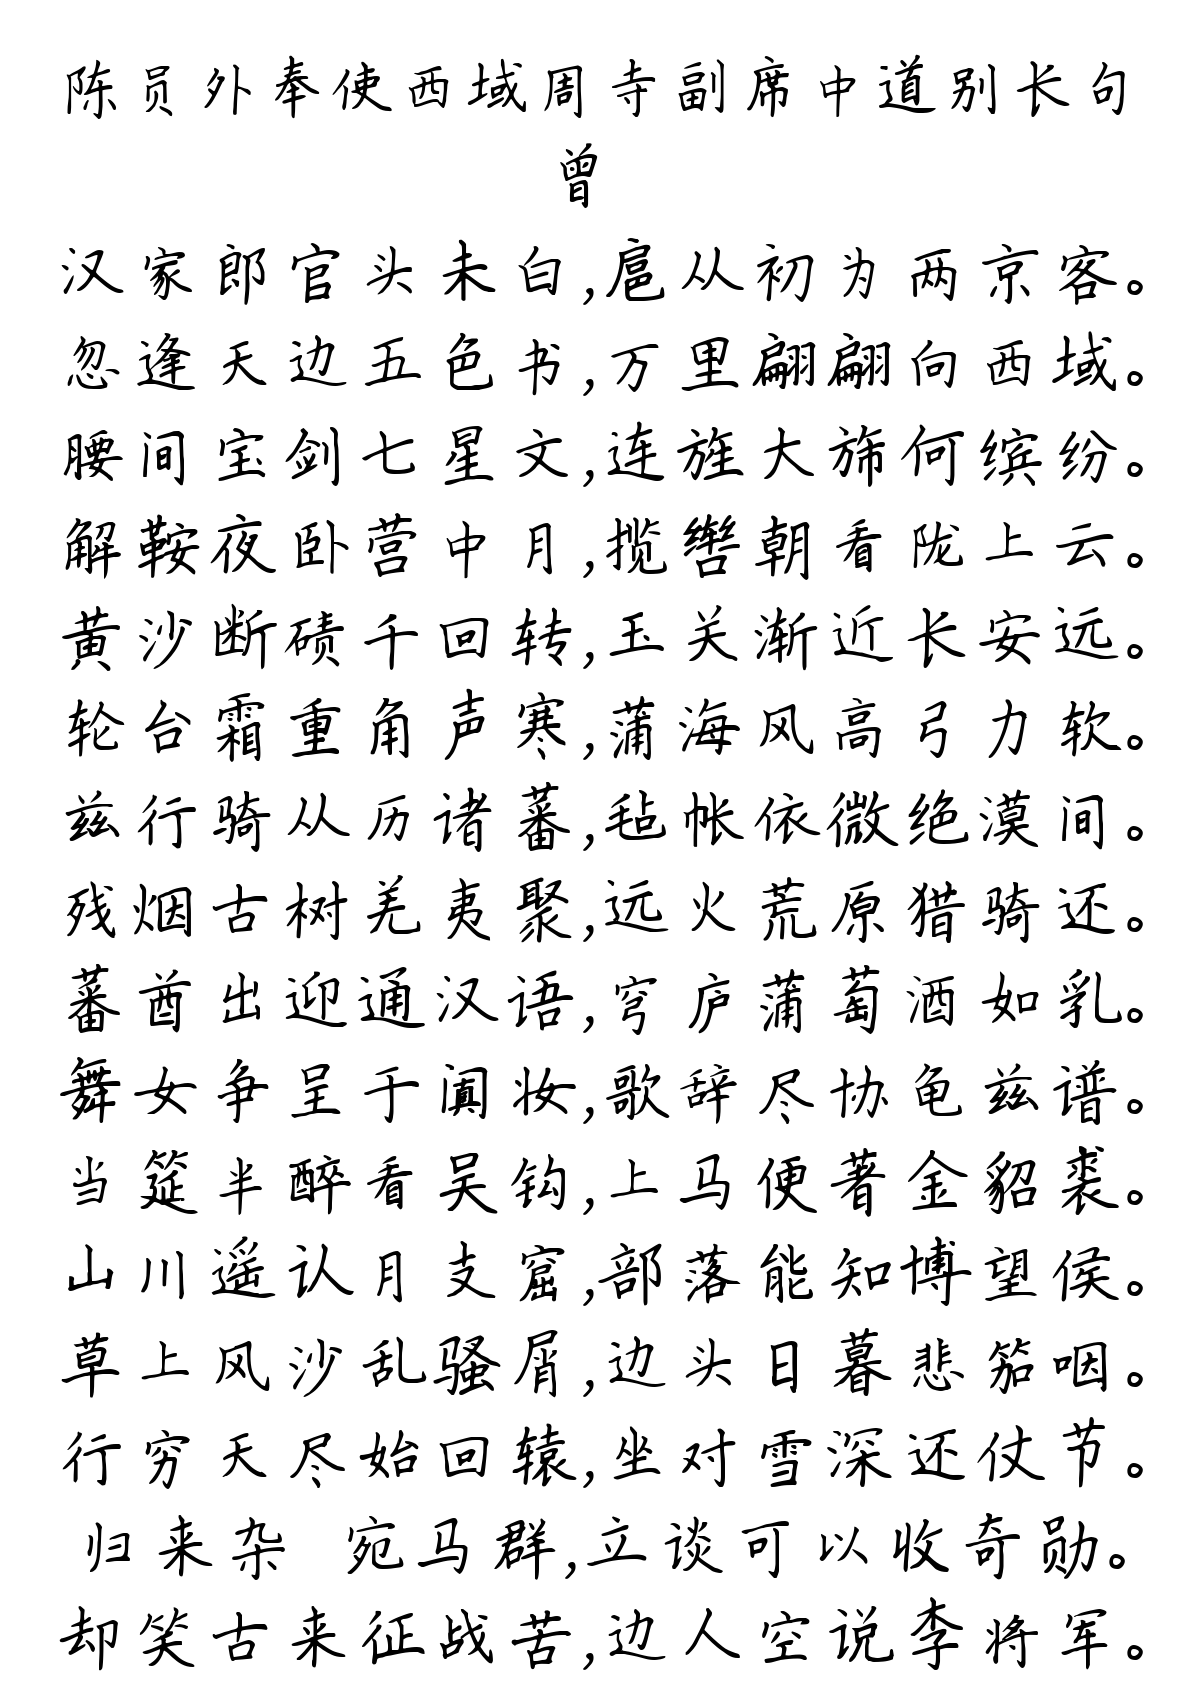 陈员外奉使西域周寺副席中道别长句
曾
汉家郎官头未白,扈从初为两京客。
忽逢天边五色书,万里翩翩向西域。
腰间宝剑七星文,连旌大旆何缤纷。
解鞍夜卧营中月,揽辔朝看陇上云。
黄沙断碛千回转,玉关渐近长安远。
轮台霜重角声寒,蒲海风高弓力软。
兹行骑从历诸蕃,毡帐依微绝漠间。
残烟古树羌夷聚,远火荒原猎骑还。
蕃酋出迎通汉语,穹庐蒲萄酒如乳。
舞女争呈于阗妆,歌辞尽协龟兹谱。
当筵半醉看吴钩,上马便著金貂裘。
山川遥认月支窟,部落能知博望侯。
草上风沙乱骚屑,边头日暮悲笳咽。
行穷天尽始回辕,坐对雪深还仗节。
归来杂 宛马群,立谈可以收奇勋。
却笑古来征战苦,边人空说李将军。